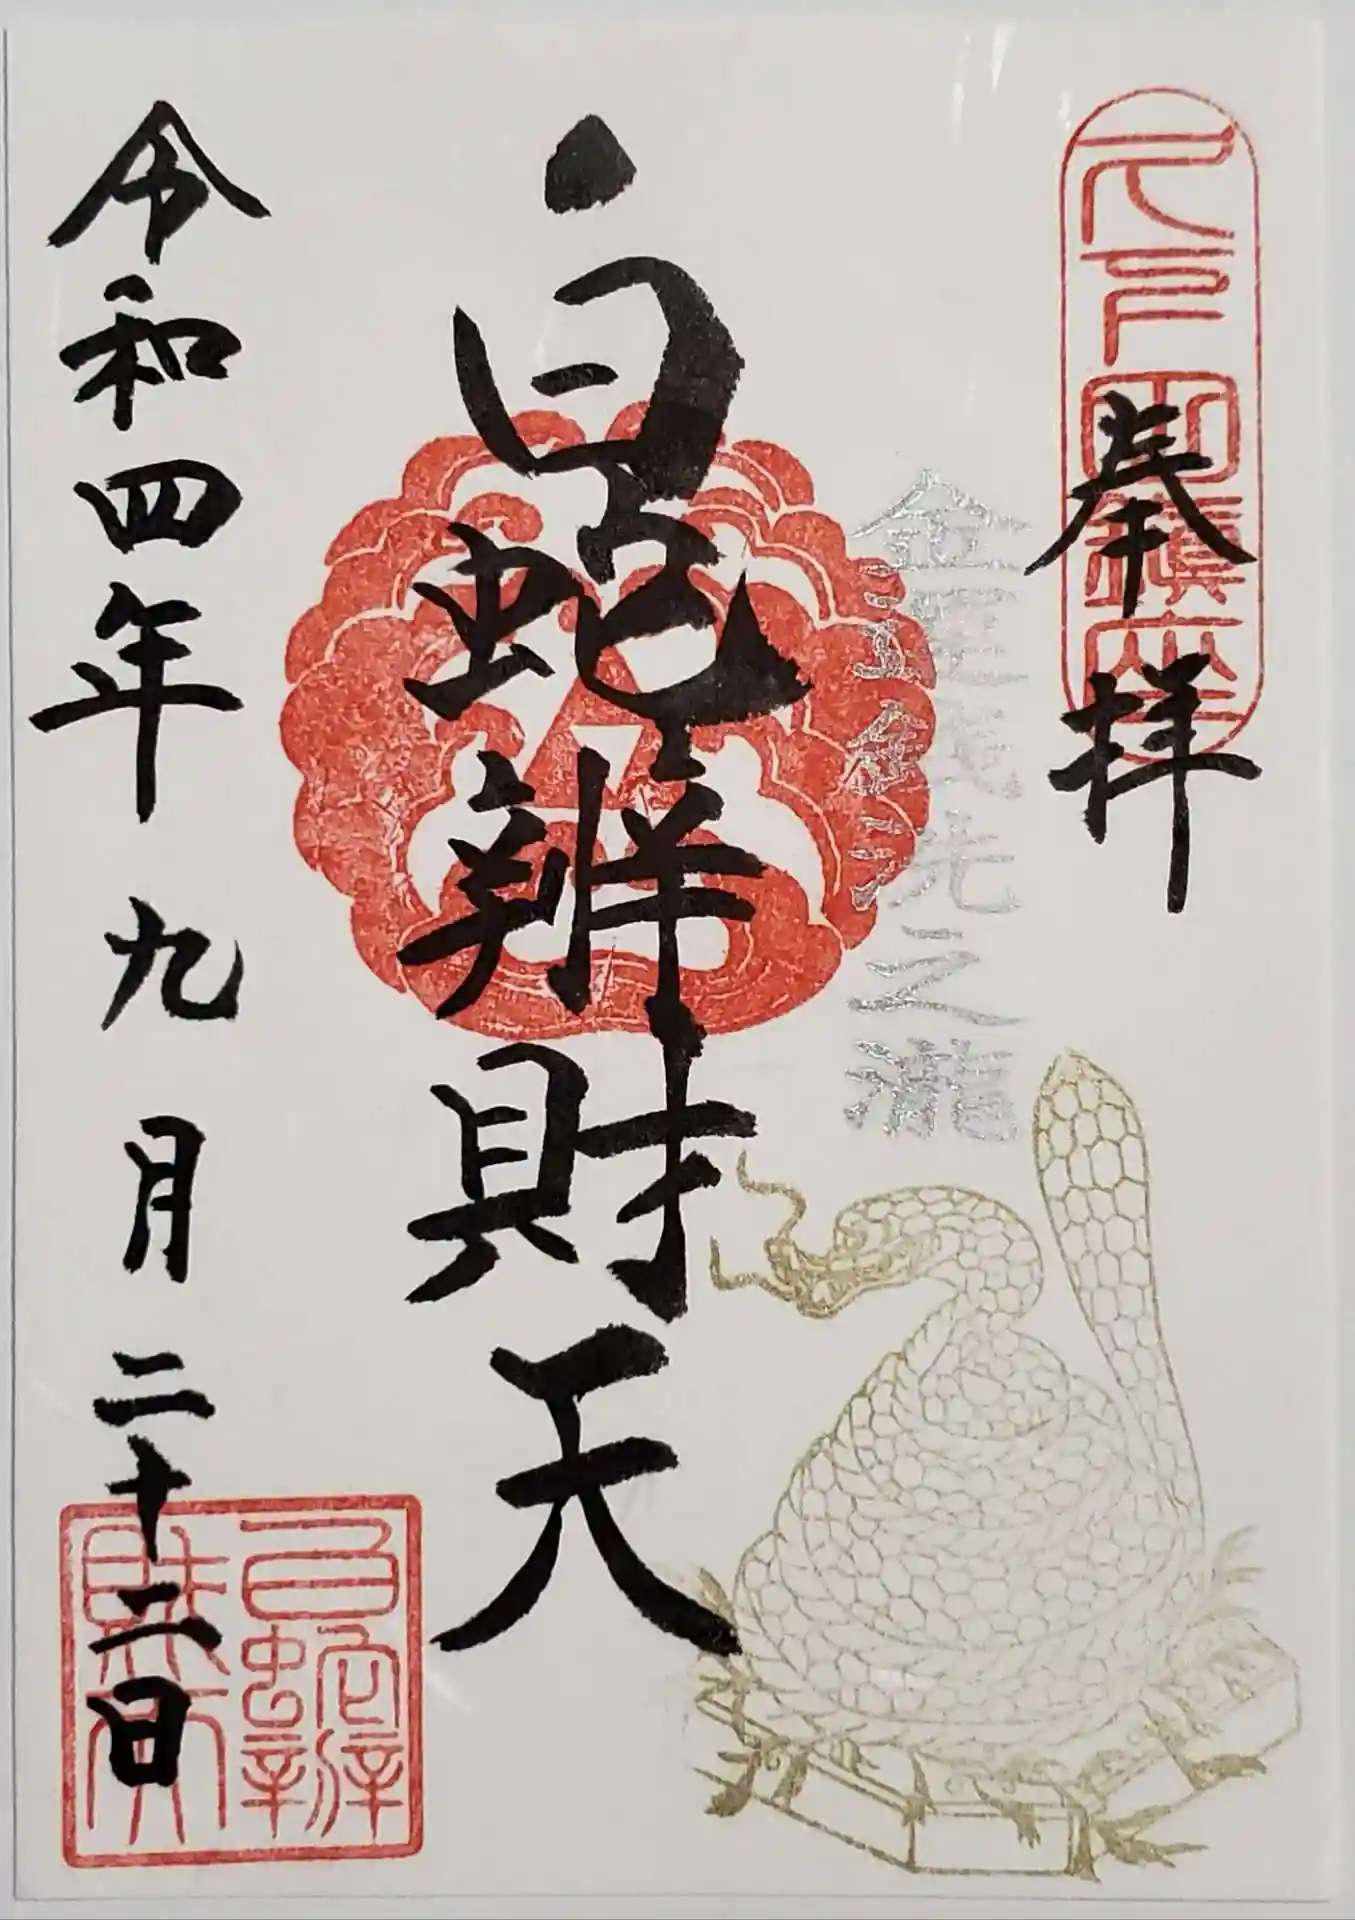 久下田鎮座
奉拝
金運銭洗之瀧
白蛇辨財天
令和四年九月二十二日
白蛇辨
財天